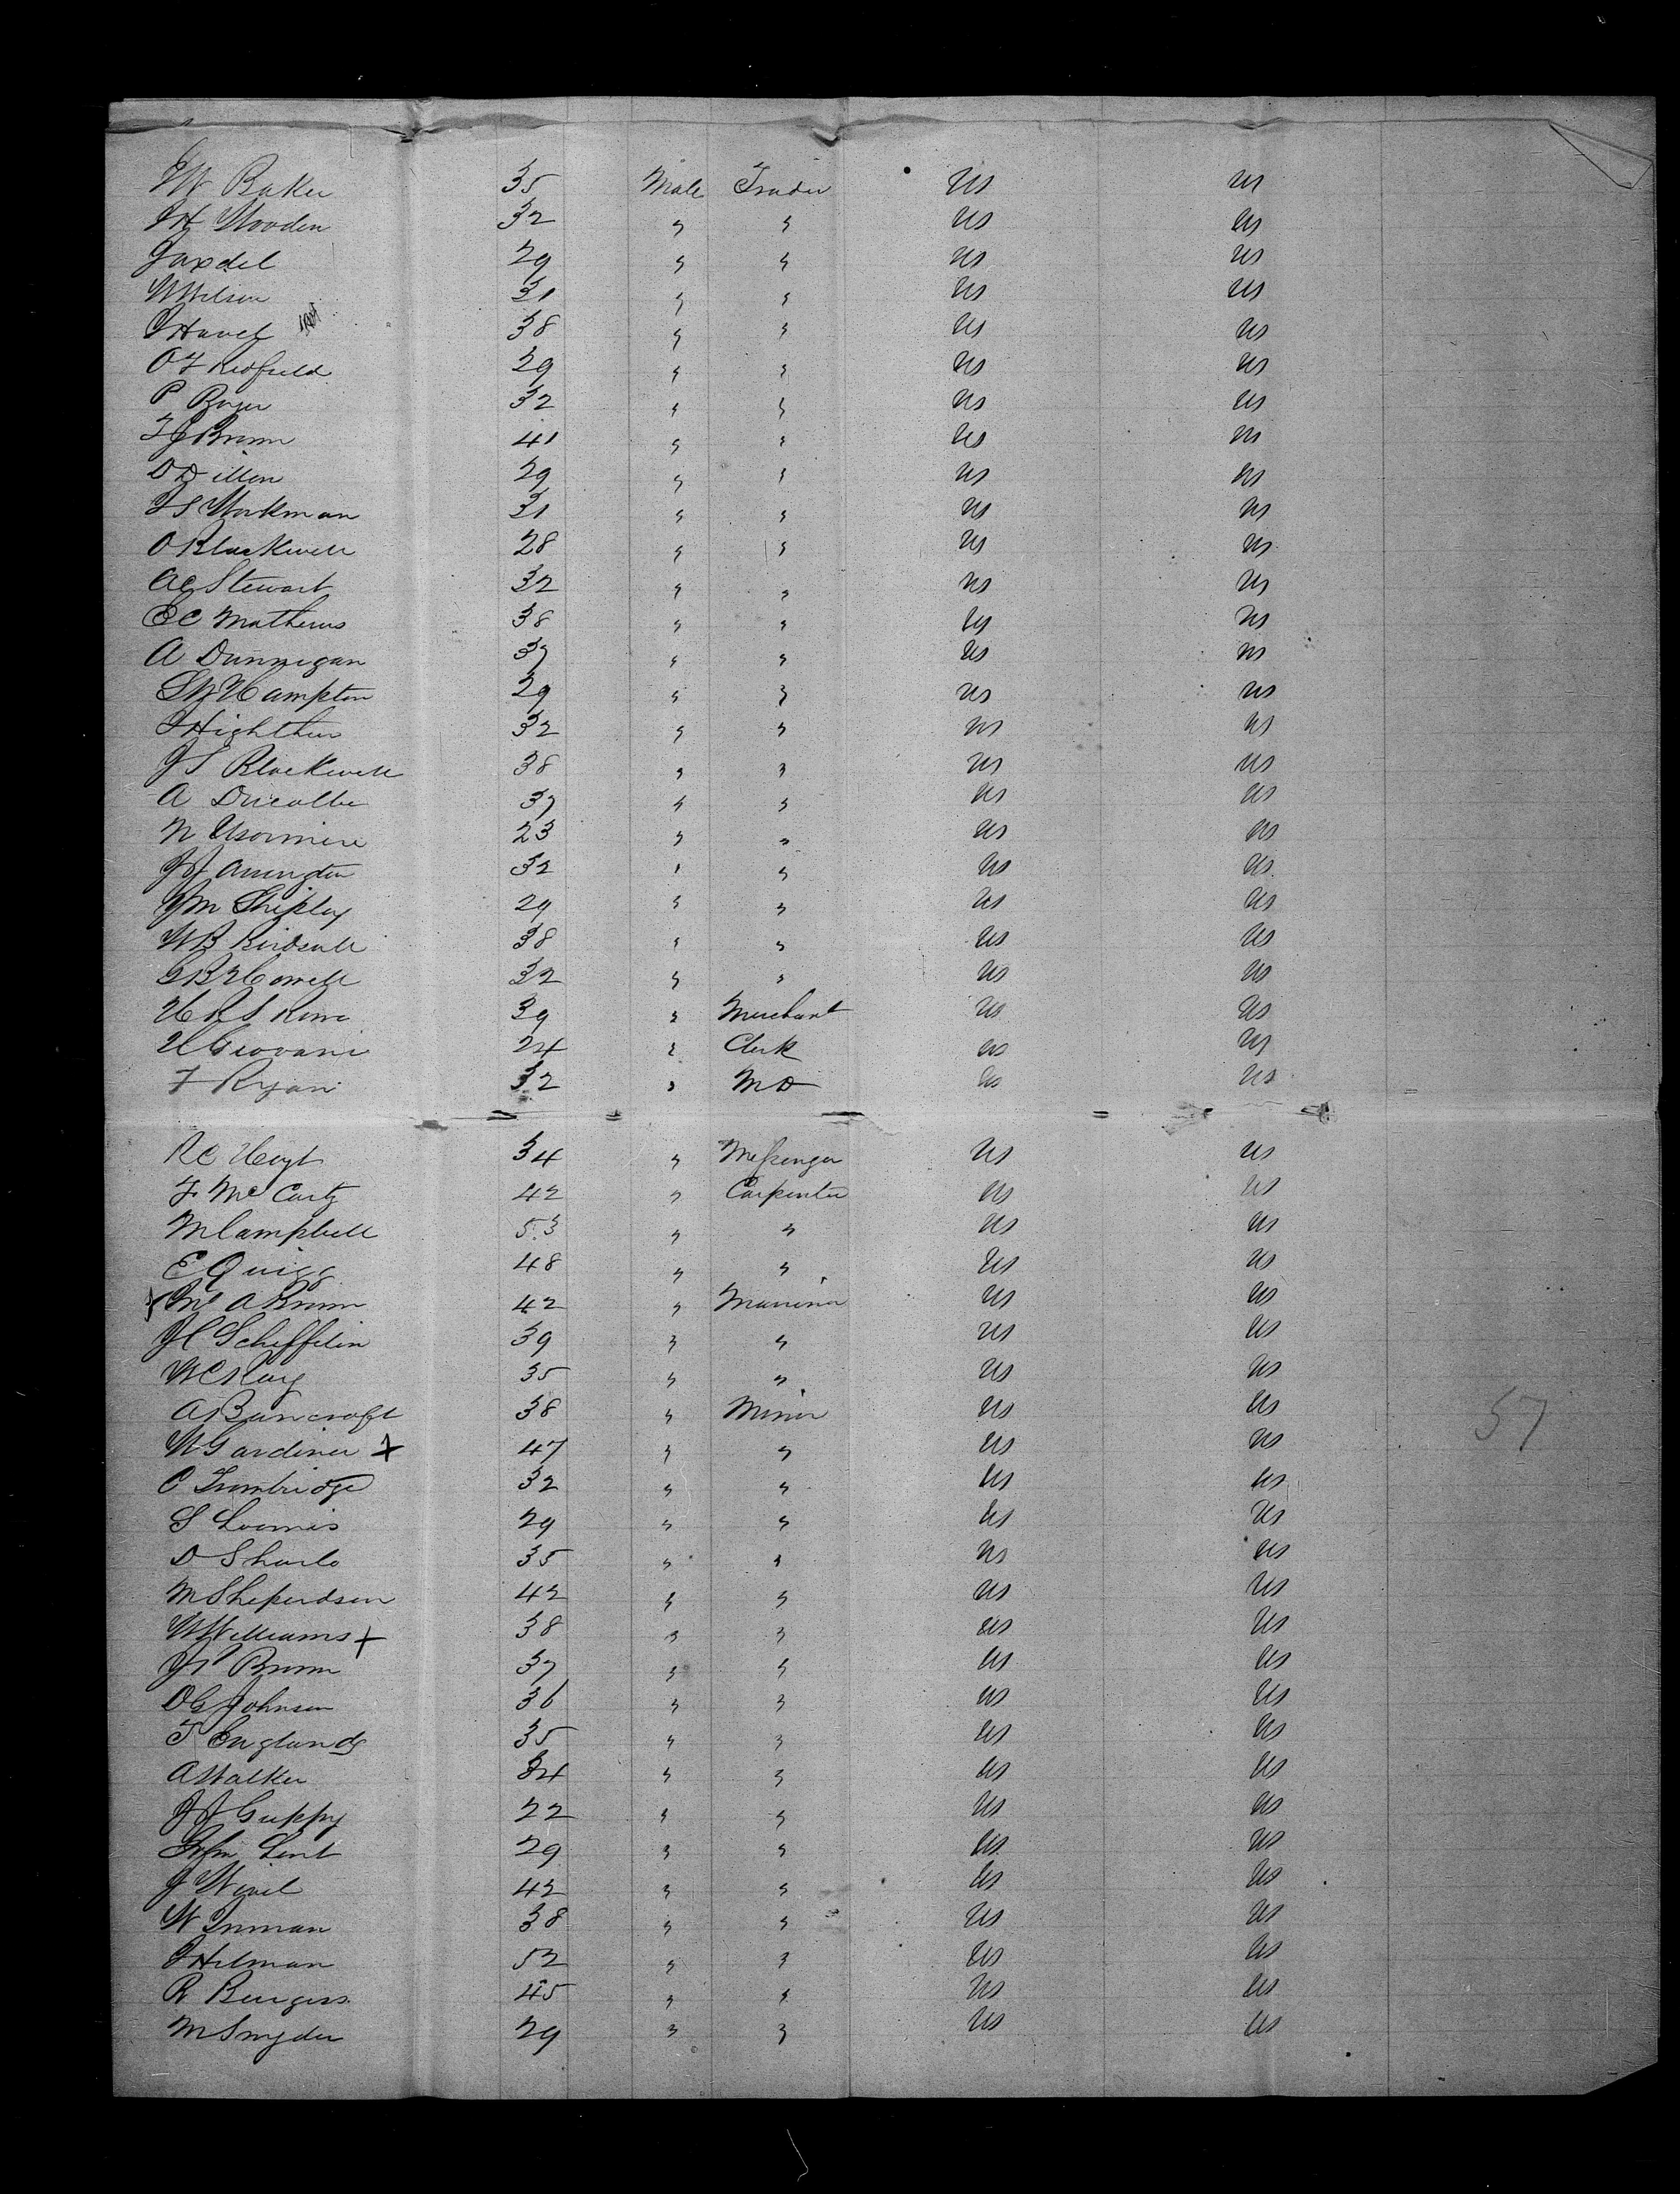 W Baker 35 Male Trader US US
J H Wooden 32 " " US US
Jaxdel 29 " " US US
W Wilson 31 " " US US
J Havel 38 " " US US
O F Redfield 29 " " US US
P Boyer 32 " " US US
F J Brown 41 " " US US
D Dillon 29 " " US US
J S Workman 31 " " US US
O Blackwell 28 " " US US
A C Stewart 32 " " US US
E C Mathews 38 " " US US
A Dunnigan 37 " " US US
Hampton 29 " " US US
32 " " US US
J S Blackwell 38 " " US US
A 37 " " US US
N 23 " " US US
J J Arrington 32 " " US US
J M Shipley 29 " " US US
W B Birdsall 38 " " US US
G B Howell 32 " " US US
H R S Rowe 39 " Merchant US US
H Giovani 24 " Clerk US US
F Ryan 32 " MD US US
R C Hoyt 34 " Messenger US US
F McCarty 42 " Carpenter US US
M Campbell 53 " " US US
E Quigg 48 " " US US
A Brown 42 " Mariner US US
J C Scheffelin 39 " " US US
W C Ray 35 " " US US
A Bancroft 38 " Minor US US
57
W Gardiner X 47 " " US US
C Trombridge 32 " " US US
S Loomis 29 " " US US
D 35 " " US US
M Sheperdson 42 " " US US
W Williams X 38 " " US US
Brown 37 " " US US
D G Johnson 36 " " US US
T England 35 " " US US
A Walker 34 " " US US
J J Guppy 22 " " US US
Lent 29 " " US US
J 42 " " US US
W Inman 38 " " US US
J Hilman 52 " " US US
R Burgess 45 " " US US
M Snyder 29 " " US US